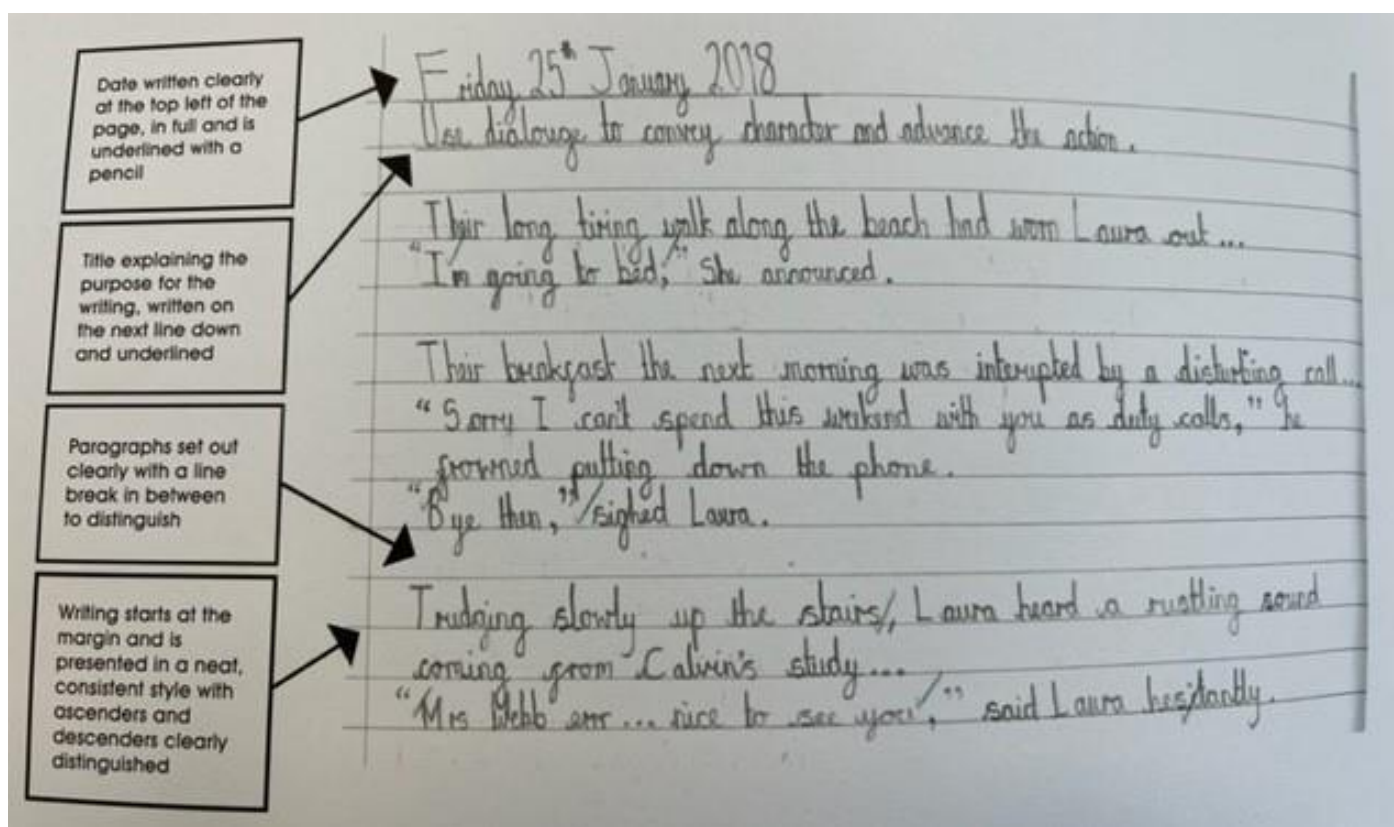 Date written clearly
at the top left of the
page, in full and is
underlined with a
pencil
Title explaining the
purpose for the
writing, written on
the next line down
and underlined
Paragraphs set out
clearly with a line
break in between
to distinguish
Writing starts at the
margin and is
presented in a neat,
consistent style with
ascenders and
descenders clearly
distinguished
Friday 25th January 2018
Use dialouge to convey character and advance the action.
Their long tiring walk along the beach had worn Laura out...
"I'm going to bed," She announced.
Their breakfast the next morning was interupted by a disturbing call...
"Sorry I can't spend this weekend with you as duty calls," he
frowned putting down the phone.
"Bye then," sighed Laura.
Trudging slowly up the stairs, Laura heard a rustling sound
coming from Calvin's study...
"Mrs Webb err... nice to see you," said Laura hesitantly.